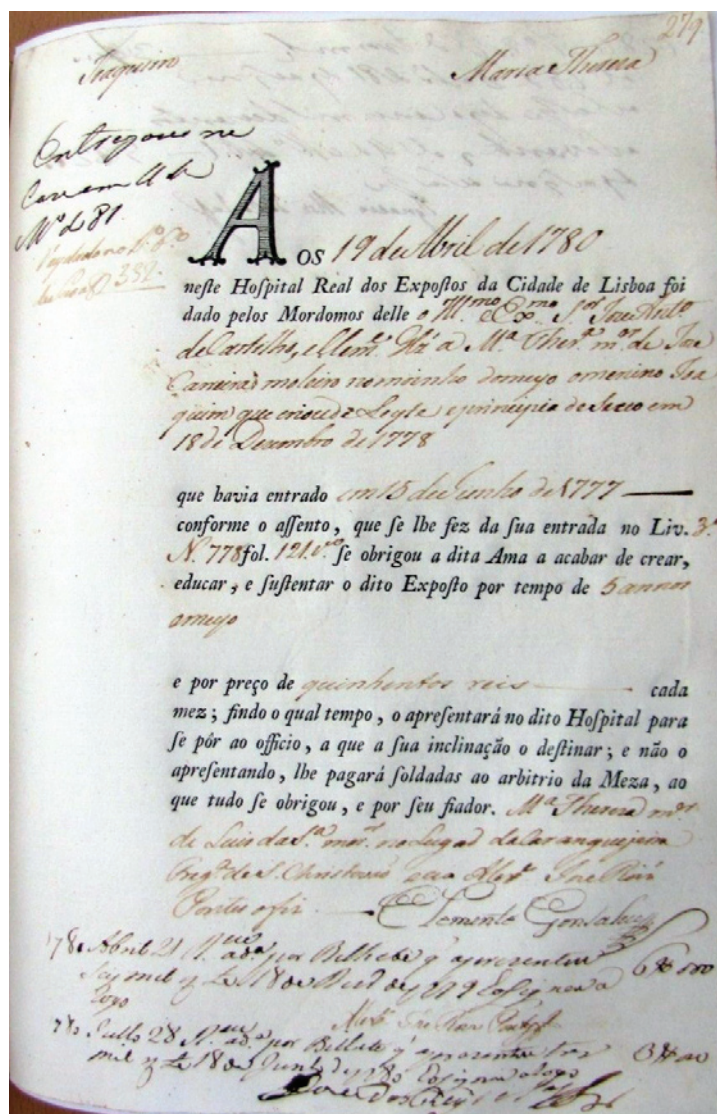 279
Joaquim Maria Thereza
Entregou se na
M.º de 81
339
AOS 19 de Abril de 1780
neſte Hoſpital Real dos Expoſtos da Cidade de Lisboa foi
dado pelos Mordomos delle o Ill.mo e Ex.mo S.or Joze
de Castilho, a M.ª Ther.ª m.er de Joze
moleiro no moinho do meyo o menino Joa
quim que criou de Leyte e principio de Seco em
18 de Dezembro de 1778
que havia entrado em 15 de Junho de 1777
conforme o aſſento, que ſe lhe fez da ſua entrada no Liv. 3.º
N. 778 fol. 121.vº ſe obrigou a dita Ama a acabar de crear,
educar, e ſuſtentar o dito Expoſto por tempo de 5 annos
e meyo
e por preço de quinhentos reis cada
mez; findo o qual tempo, o apreſentará no dito Hoſpital para
ſe pôr ao officio, a que a ſua inclinação o deſtinar; e não o
apreſentando, lhe pagará ſoldadas ao arbitrio da Meza, ao
que tudo ſe obrigou, e por ſeu fiador. M.ª Thereza m.er
de Luis da S.ª mor. no Lugar da Caranguejeira
Freg.ª de S. Christovão Joze
Clemente Gonsalves
780 Abril 21 por Bilhete q aprezentou
Seis mil 18 de
Logo
780 Julho 28 por Bilhete q aprezentou tres
mil 18 de Junho de 780 logo